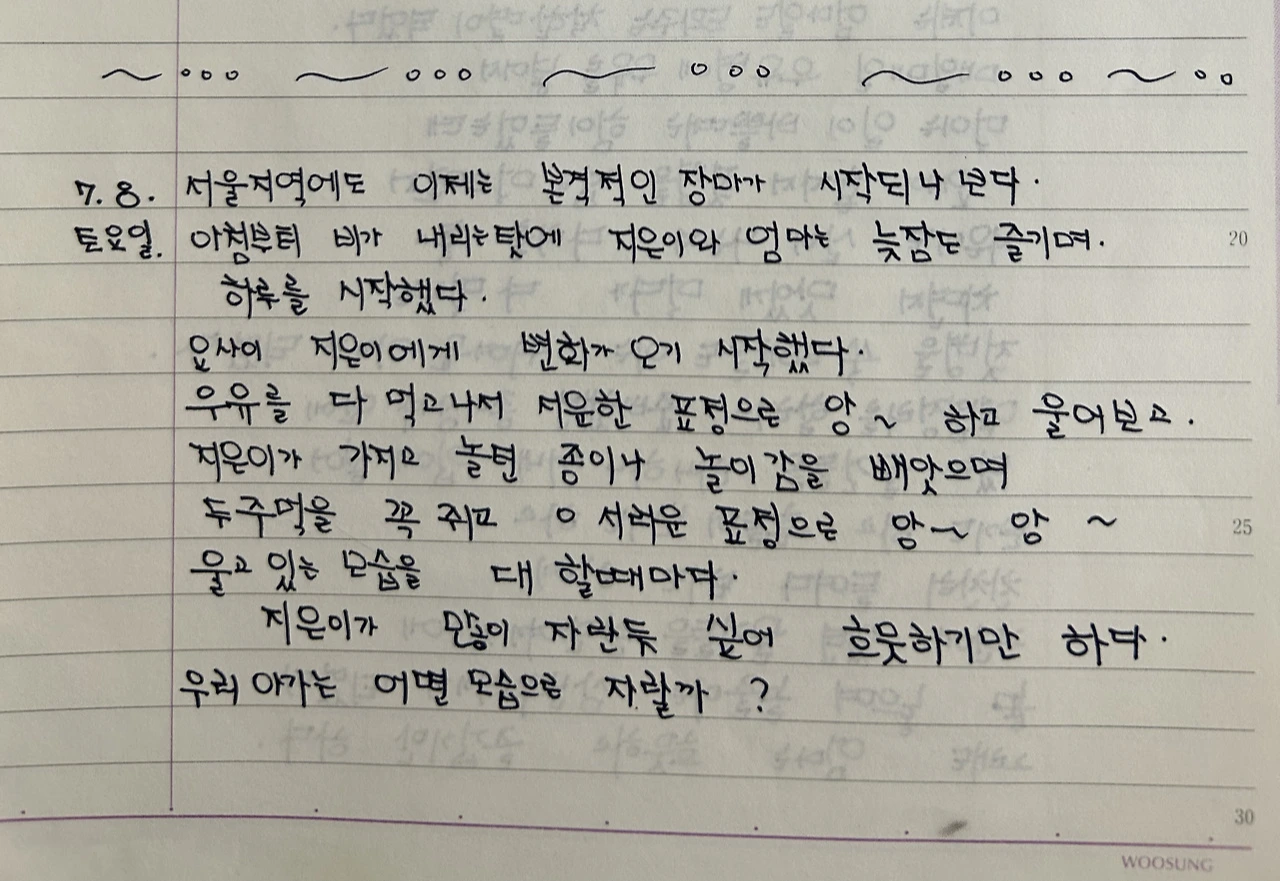 7.8. 서울지역에도 이제는 본격적인 장마가 시작되나 보다.
토요일. 아침부터 비가 내리는탓에 지은이와 엄마는 늦잠도 즐기며. 20
하루를 시작했다.
요사이 지은이에게 변화가 오기 시작했다.
우유를 다 먹고나서 서운한 표정으로 앙~ 하고 울어보고.
지은이가 가지고 놀던 종이나 놀이감을 빼앗으며
두주먹을 꼭 쥐고 서러운 표정으로 앙~ 앙 ~ 25
울고 있는 모습을 대 할때마다.
지은이가 많이 자란듯 싶어 흐뭇하기만 하다.
우리 아가는 어떤 모습으로 자랄까 ?
30
WOOSUNG